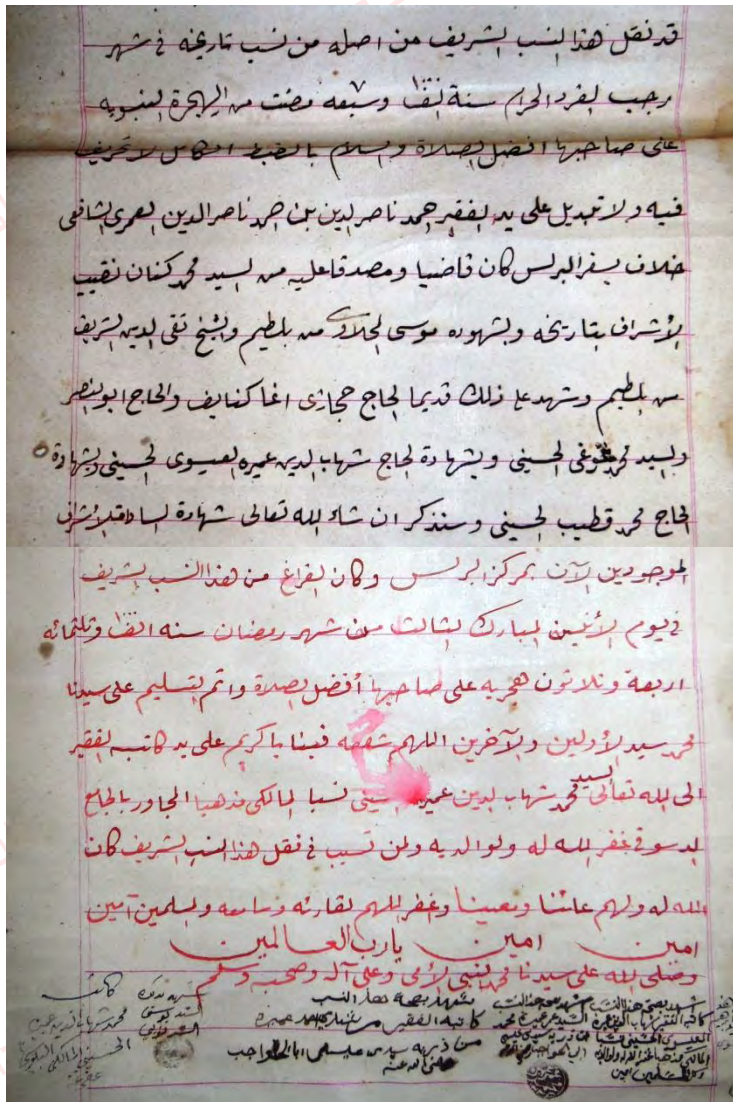 قد نقل هذا النسب الشريف من اصله من نسب تاريخه في شهر
رجب الفرد الحرام سنة الف وسبعه مضت من الهجرة النبويه
على صاحبها افضل الصلاة والسلام بالضبط الكامل لا تحريف
فيه ولا تبديل على يد الفقير احمد ناصر الدين بلن احمد ناصر الدين العمرى الشافعى
خلاف بسفر البرلس كان قاضيا ومصدقا عليه من السيد محمد كنان نقيب
الأشراف بتاريخه وبشهوده موسى الحلاوى من بلطيم والشيخ تقى الدين الشريف
من بلطيم وشهد على ذلك قديما الحاج حجازى اغا كنايف والحاج ابو النصر
والسيد محمد الحسينى وبشهادة الحاج شهاب الدين عميره العيسوى الحسينى وبشهادة
الحاج محمد قطيب الحسينى وسنذكر ان شاء الله تعالى شهادة السادة الأشراف
الموجودين الآن بمركز البرلس وكان الفراغ من هذا النسب الشريف
في يوم الأثنين المبارك الثالث من شهر رمضان سنه الف وثلثمائه
اربعة وثلاثون هجريه على صاحبها أفضل الصلاة واتم التسليم على سيدنا
محمد سيد الأولين والآخرين اللهم شفعه فينا يا كريم على يد كاتبه الفقير
الى الله تعالى السيد محمد شهاب الدين عميره نسبا المالكى مذهبا المجاور بالجامع
الدسوقى غفر الله له ولوالديه ولمن تسبب فى نقل هذا النسب الشريف كان
الله له ولهم عائنا ومعينا وغفر اللهم لقارئه وسامعه والمسلمين آمين
امين امين يارب العالمين
وصلى الله على سيدنا محمد النبى الأمى وعلى آله وصحبه وسلم
نشهد بصحة هذا النسب
كاتبه الفقير عميرة
من ذرية سيدى عيسى
رضى الله عنه
كاتبه
محمد شهاب الدين عميره
الحسينى المالكى